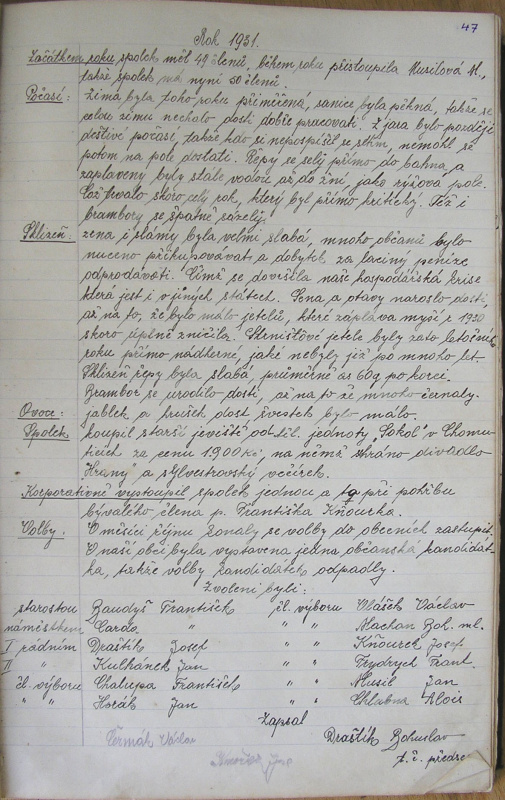 47
Rok 1931.
Začátkem roku spolek měl 49 členů, během roku přistoupila Musilová M.,
takže spolek má nyní 50 členů.
Počasí: Zima byla toho roku přiměřená, sanice byla pěkná, takže se
celou zimu nechalo dosti dobře pracovati. Z jara bylo později
deštivé počasí, takže kdo si nepospíšil se setím, nemohl se
potom na pole dostati. Řepy se sely přímo do bahna a
zaplaveny byly stále vodou až do žní, jako rýžová pole.
Což trvalo skoro celý rok, který byl přímo kritický. Též i
brambory se špatně sázely.
Sklizeň: zrna i slámy byla velmi slabá, mnoho občanů bylo
nuceno přikupovávati a dobytek za laciný peníze
odprodávati. Čímž se dovršila naše hospodářská krise
která jest i v jiných státech. Sena a otavy narostlo dosti,
až na to, že bylo málo jetelů, které záplava myší z 1930
skoro úplně zničila. Strništové jetele byly zato letošního
roku přímo nádherné, jaké nebyly již po mnoho let.
Sklizeň řepy byla slabá, průměrně as 60q po korci.
Brambor se urodilo dosti, až na to že mnoho černaly.
Ovoce: jablek a hrušek dost švestek bylo málo.
Spolek koupil starší jeviště od těl. jednoty "Sokol" v Chomu-
ticích za cenu 1.900 Kč, na němž sehráno divadlo
"Hrany" a sylvestrovský večírek.
Korporativně vystoupil spolek jednou a to při pohřbu
bývalého člena p. Františka Kňourka.
Volby. V měsíci říjnu konaly se volby do obecních zastupit.
V naší obci byla vystavena jedna občanská kandidát-
ka, takže volby kandidátek odpadly.
Zvoleni byli:
starostou Baudyš František čl. výboru Vlášek Václav
náměstkem Carda " " " Machan Boh. ml.
I radním Draštík Josef " " Kňourek Josef
II " Kulhánek Jan " " Frydrych Frant.
čl. výboru Chalupa František " " Musil Jan
" " Horák Jan " " Chlubna Alois
Zapsal
Čermák Václav Draštík Bohuslav
t. č. předse